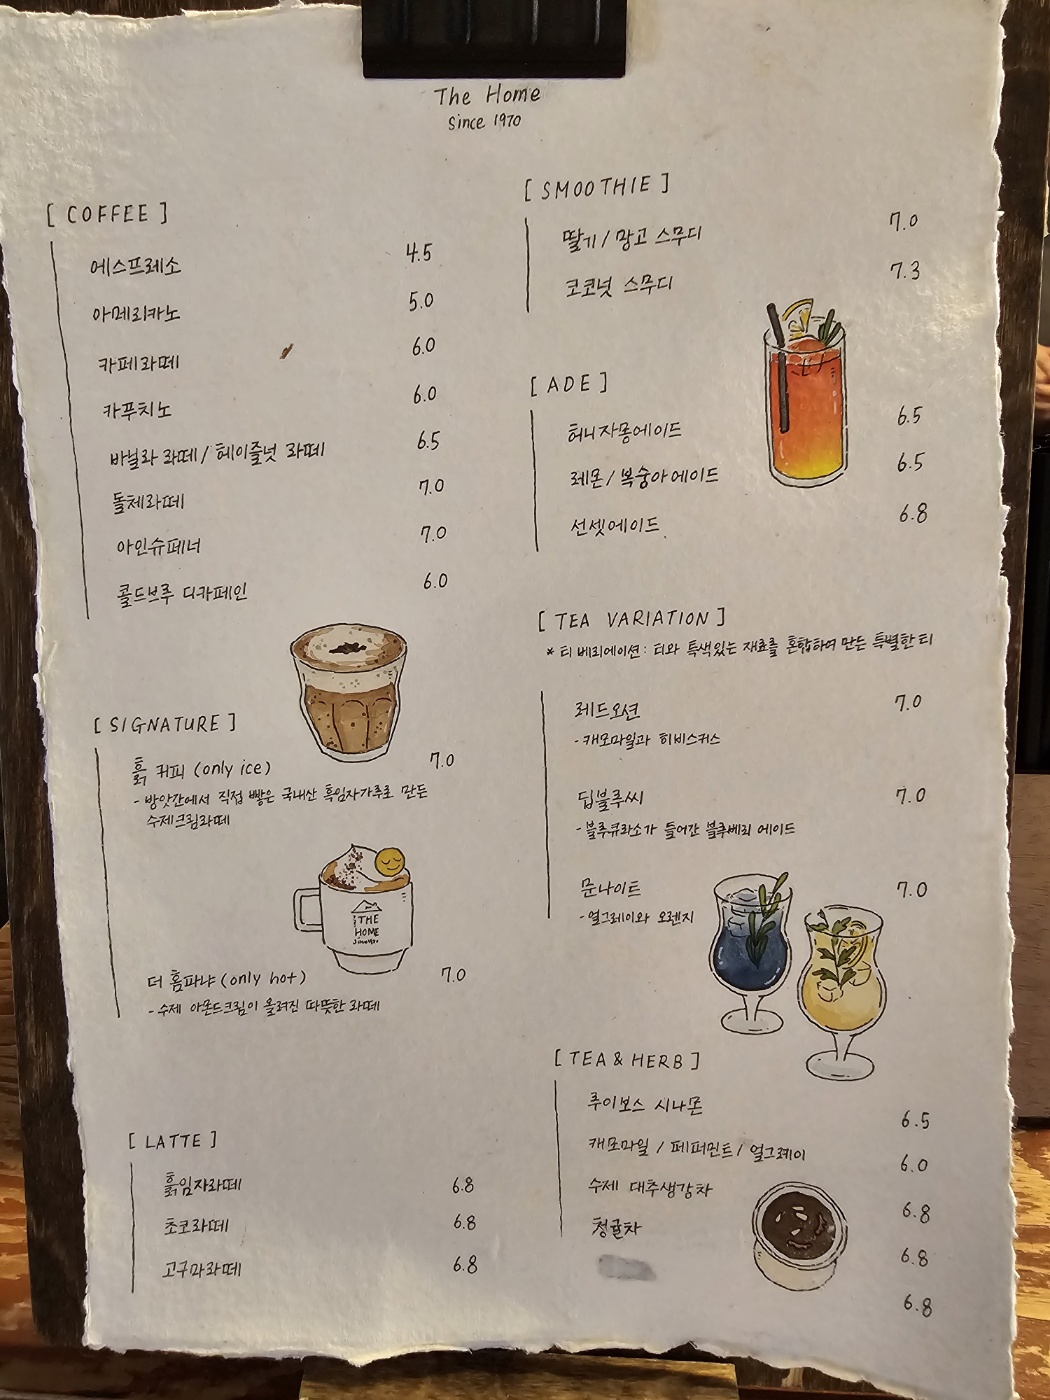 The Home
Since 1970
[ COFFEE ]
에스프레소 4.5
아메리카노 5.0
카페라떼 6.0
카푸치노 6.0
바닐라 라떼 / 헤이즐넛 라떼 6.5
돌체라떼 7.0
아인슈페너 7.0
콜드브루 디카페인 6.0
[ SIGNATURE ]
흙 커피 (only ice) 7.0
- 방앗간에서 직접 빻은 국내산 흑임자가루로 만든
수제크림라떼
THE
HOME
더 홈파냐 (only hot) 7.0
- 수제 아몬드크림이 올려진 따뜻한 라떼
[ LATTE ]
흙임자라떼 6.8
초코라떼 6.8
고구마라떼 6.8
[ SMOOTHIE ]
딸기 / 망고 스무디 7.0
코코넛 스무디 7.3
[ ADE ]
허니자몽에이드 6.5
레몬 / 복숭아에이드 6.5
선셋에이드 6.8
[ TEA VARIATION ]
* 티 베리에이션 : 티와 특색있는 재료를 혼합하여 만든 특별한 티
레드오션 7.0
- 캐모마일과 히비스커스
딥블루씨 7.0
- 블루큐라소가 들어간 블루베리 에이드
문나이트 7.0
- 얼그레이와 오렌지
[ TEA & HERB ]
루이보스 시나몬 6.5
캐모마일 / 페퍼민트 / 얼그레이 6.0
수제 대추생강차 6.8
청귤차 6.8
6.8